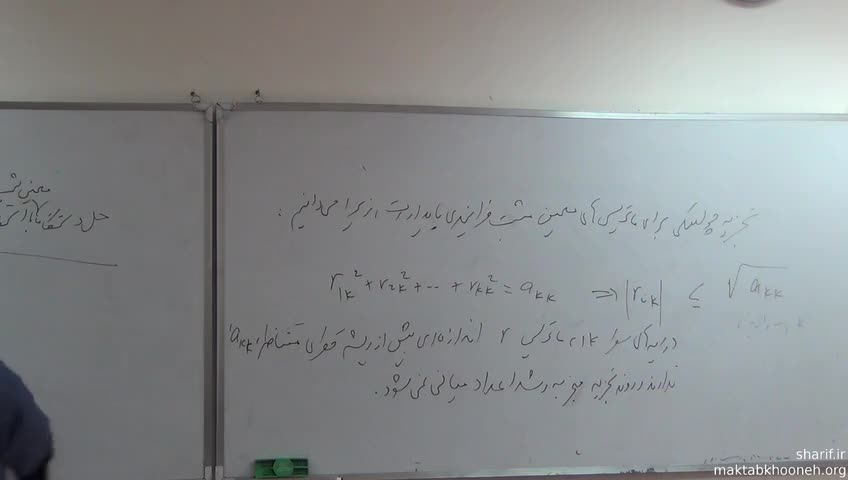 تجزیه چولسکی برای ماتریس‌های معین مثبت فرایندی پایدار است، زیرا می‌دانیم :
r₁ₖ² + r₂ₖ² + ... + rₖₖ² = aₖₖ ⇒ |rᵢₖ| ≤ √aₖₖ
درایه‌های سوا k ماتریس r اندازه‌ای بیش از ریشه قطری متناظر، aₖₖ
ندارند و روند تجزیه منجر به رشد اعداد میانی نمی‌شود.
معین
حل دستگاه با
sharif.ir
maktabkhooneh.org